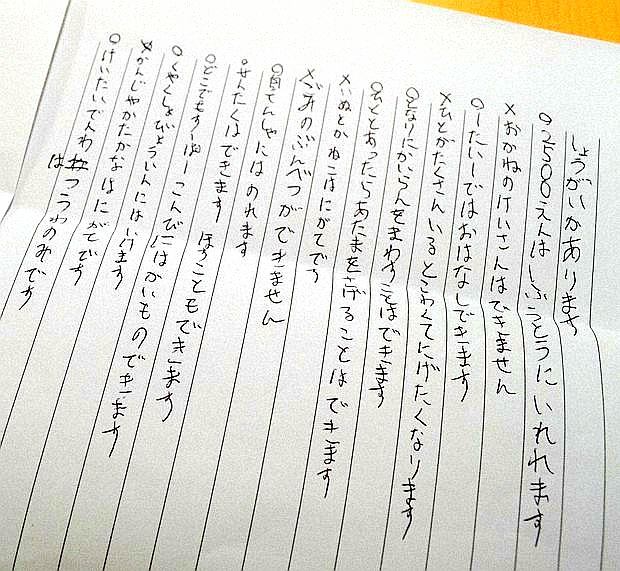 しょうがいかあります
○2500えんは ふうとうに いれれます
×おかねのけいさんはできません
○1たい1ではおはなしできます
×ひとがたくさんいるとこわくてにげたくなります
○となりにかいらんをまわすことはできます
○ひととあったらあたまをさげることはできます
×いぬとかねこはにがてです
×ごみのぶんべつができません
○自てんしゃにはのれます
○せんたくはできます ほすこともできます
○どこでもすーぱー こんびにはかいものできます
○くやくしょびょういんにはいけます
×かんじやかたかなはにがてです
○けいたいでんわ
はつうわのみです